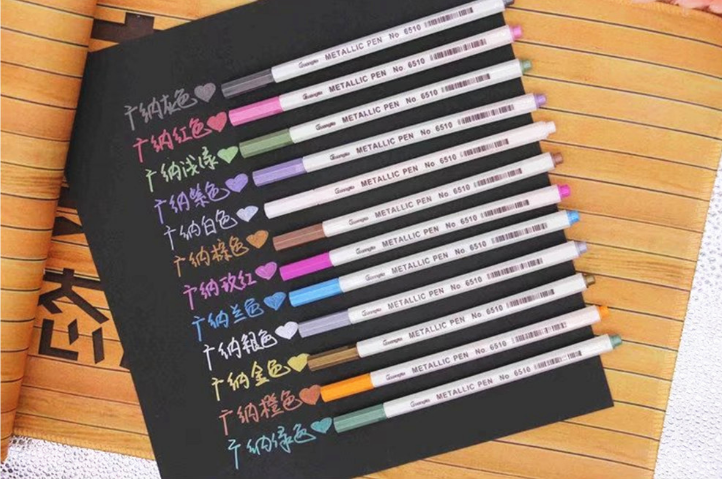 广纳灰色 METALLIC PEN No 6510
广纳红色 METALLIC PEN No 6510
广纳浅绿 METALLIC PEN No 6510
广纳紫色 METALLIC PEN No 6510
广纳白色 METALLIC PEN No 6510
广纳棕色 METALLIC PEN No 6510
广纳玫红 METALLIC PEN No 6510
广纳兰色 METALLIC PEN No 6510
广纳粗色 METALLIC PEN No 6510
广纳金色 METALLIC PEN No 6510
广纳橙色 METALLIC PEN No 6510
广纳绿色 METALLIC PEN No 6510